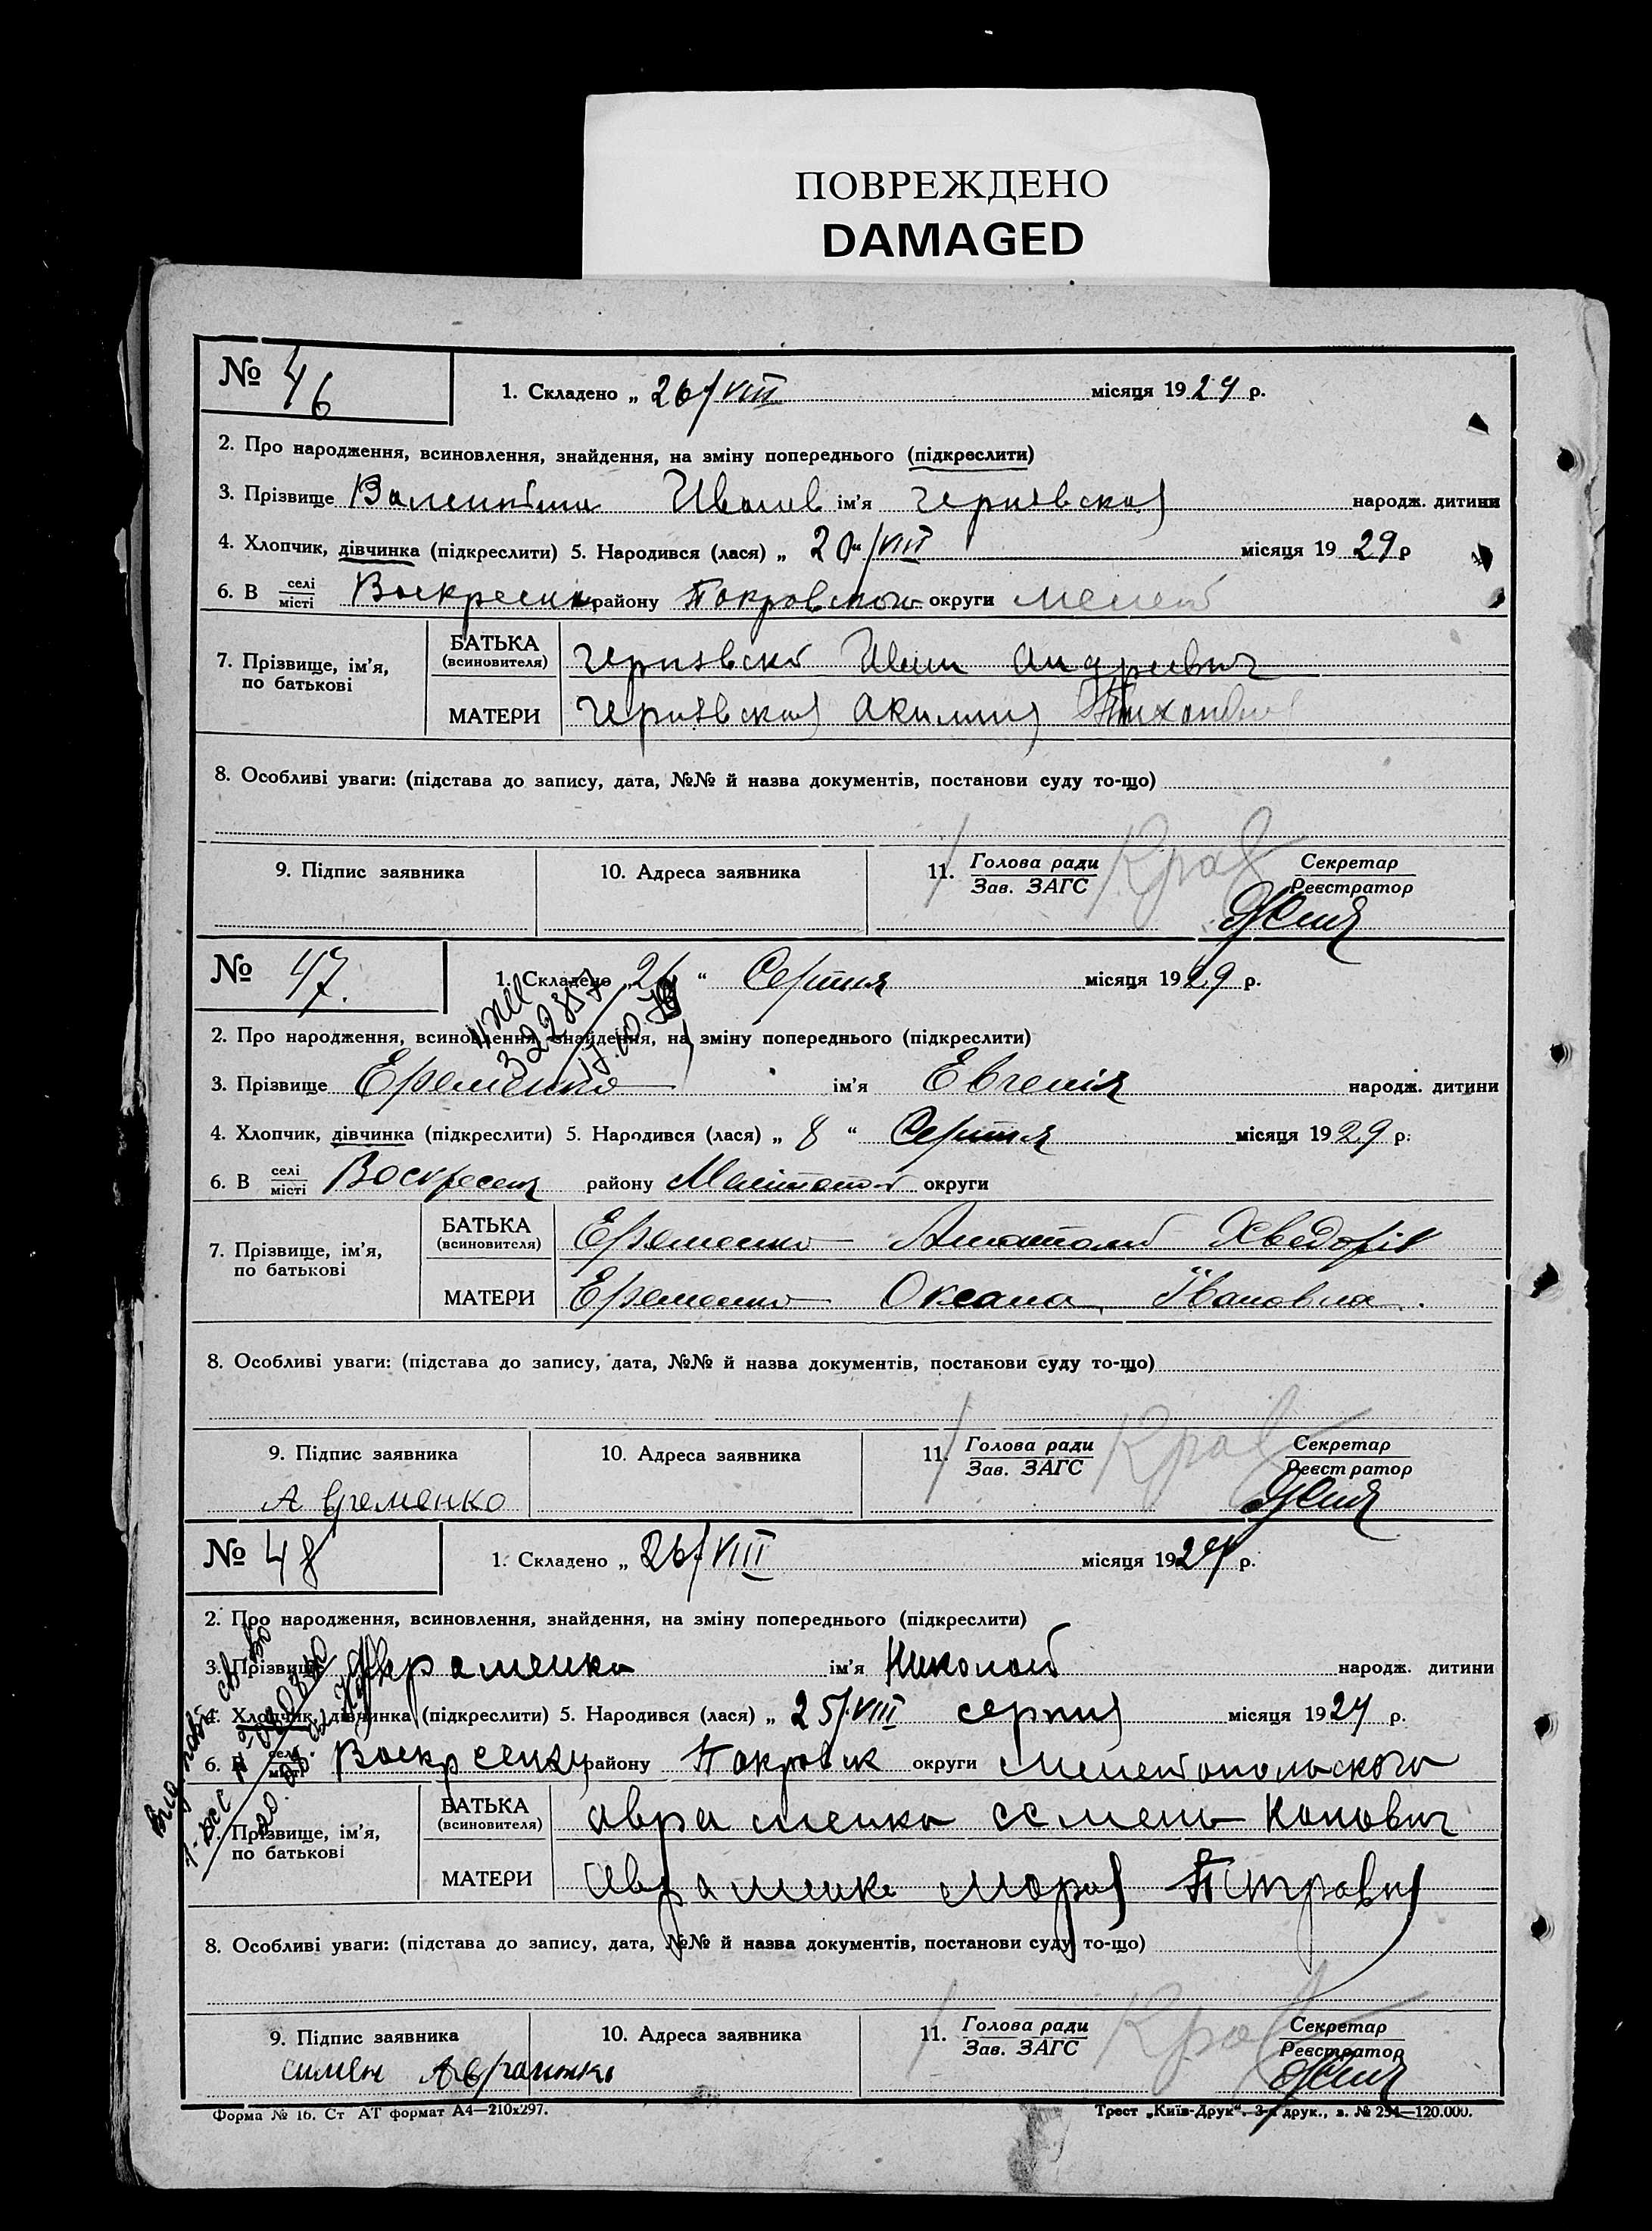 ПОВРЕЖДЕНО
DAMAGED
№ 46
1. Складено „ 26/VIII місяця 1929 р.
2. Про народження, всиновлення, знайдення, на зміну попереднього (підкреслити)
3. Прізвище Валентина Иванів ім'я Чернявская народж. дитини
4. Хлопчик, дівчинка (підкреслити) 5. Народився (лася) „ 20 “/VIII місяця 1929 р
6. В селі/місті Воскресенк району Покровского округи Мелет
7. Прізвище, ім'я, по батькові
БАТЬКА (всиновителя) Чернявскй Иван Андреевич
МАТЕРИ Чернявская Акилина Тихон
8. Особливі уваги: (підстава до запису, дата, №№ й назва документів, постанови суду то-що)
9. Підпис заявника 10. Адреса заявника 11. Голова ради/Зав. ЗАГС Крав Секретар/Реєстратор
№ 47.
1. Складено „ 26 “ Серпня місяця 1929 р.
322857
2. Про народження, всиновлення, знайдення, на зміну попереднього (підкреслити)
3. Прізвище Еременко ім'я Евгенія народж. дитини
4. Хлопчик, дівчинка (підкреслити) 5. Народився (лася) „ 8 “ Серпня місяця 1929 р.
6. В селі/місті Воскресен району округи
7. Прізвище, ім'я, по батькові
БАТЬКА (всиновителя) Еременко Анатолій Хведорів
МАТЕРИ Еременко Оксана Івановна.
8. Особливі уваги: (підстава до запису, дата, №№ й назва документів, постанови суду то-що)
9. Підпис заявника 10. Адреса заявника 11. Голова ради/Зав. ЗАГС Крав Секретар/Реєстратор
А Єременко
№ 48
1. Складено „ 26/VIII місяця 1929 р.
2. Про народження, всиновлення, знайдення, на зміну попереднього (підкреслити)
3. Прізвище Авраменко ім'я Николай народж. дитини
4. Хлопчик, дівчинка (підкреслити) 5. Народився (лася) „ 25/VIII серпня місяця 1929 р.
6. В селі/місті Воскрсенка району Покровск округи Мелетопольского
7. Прізвище, ім'я, по батькові
БАТЬКА (всиновителя) Авраменко Семень Конович
МАТЕРИ Авраменко Мария Петровна
8. Особливі уваги: (підстава до запису, дата, №№ й назва документів, постанови суду то-що)
9. Підпис заявника 10. Адреса заявника 11. Голова ради/Зав. ЗАГС Крав Секретар/Реєстратор
Форма № 16. Ст АТ формат А4—210х297.
Трест „Київ-Друк“. 3-я друк., з. № 254—120.000.